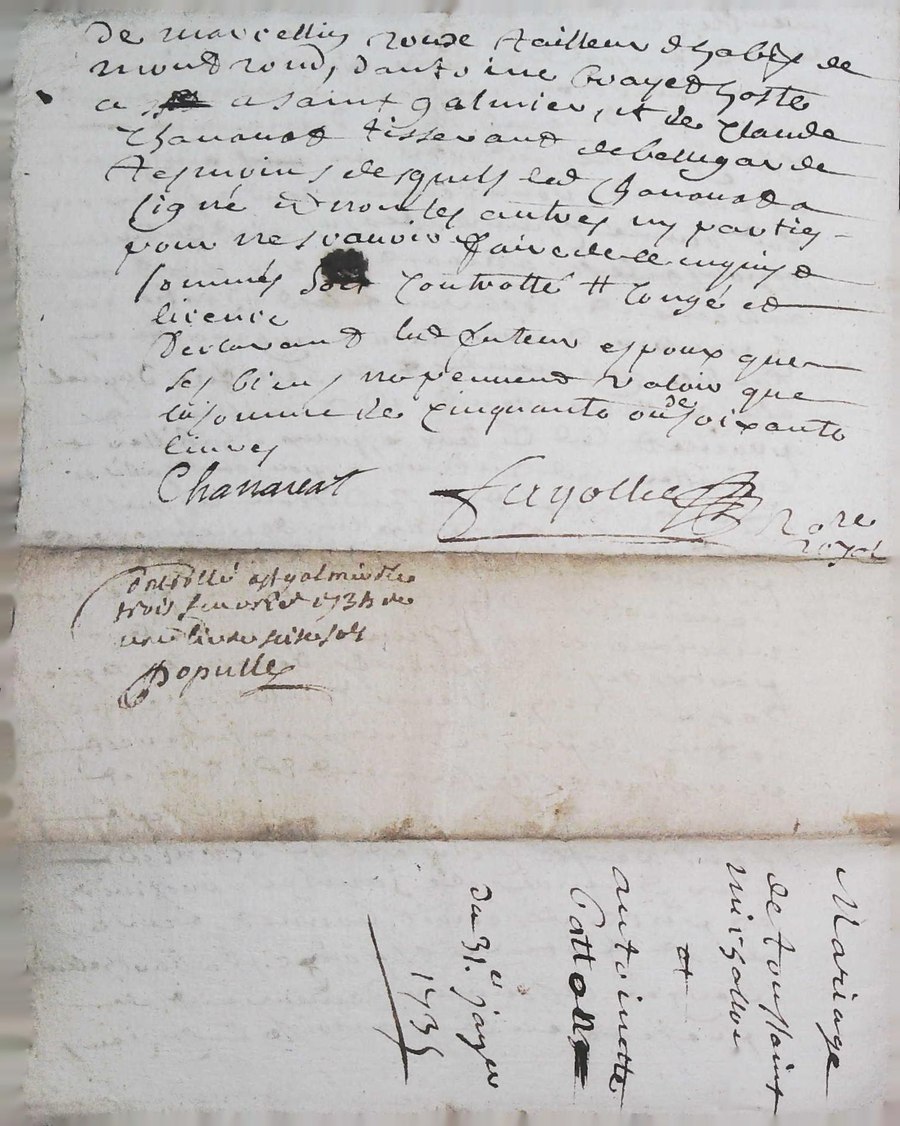 de marcellin rouze tailleur d'habis de
montrond, d'antoine boayed hoste
a a saint galmier, et de claude
Chavanat tisserand de bellegarde
tesmoins desquels led Chavanat a
signé et non les autres ny parties
pour ne scavoir faire de ce enquis et
sommés soit controllé # congé et
licence
Declarant led futeur espoux que
ses biens ne peuvent valoir que
la somme de cinquante ou de soixante
livres
Chanaveat
no.re
royal
Controllé a st galmier le
trois feuvrier 173 de
une livre seise sols
Populle
Mariage
de toussaint
et
antoinette
Catton
du 31.e janver
1735